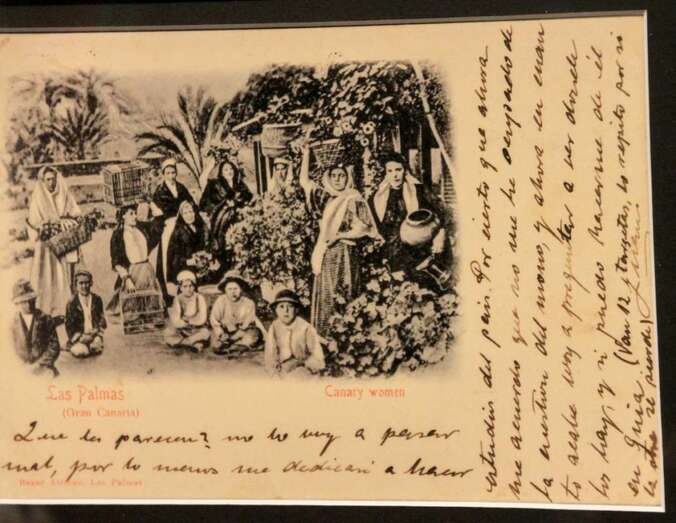 Las Palmas
(Gran Canaria)
Canary women
Que les parecen? no lo voy a pasar
mal, por lo menos me dedicaré a hacer
Bazar Aleman, Las Palmas
estudios del pais. Por cierto que ahora
me acuerdo que no me he ocupado de
la cuestion del mono, y ahora en cuan
to acabe voy a preguntar a ver donde
los hay, y si puedo hacerme de él
en (Van 12 tarjetas, lo repito por si
la otra se pierde)